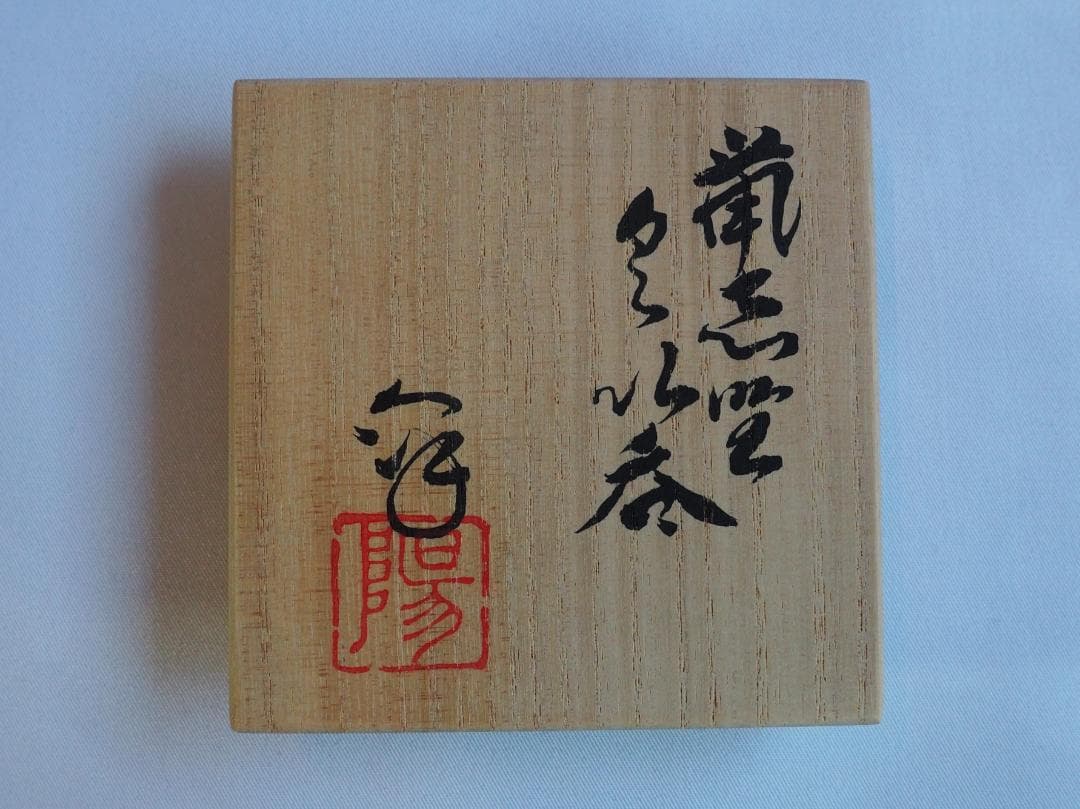 鼡志野
ぐい呑
陽